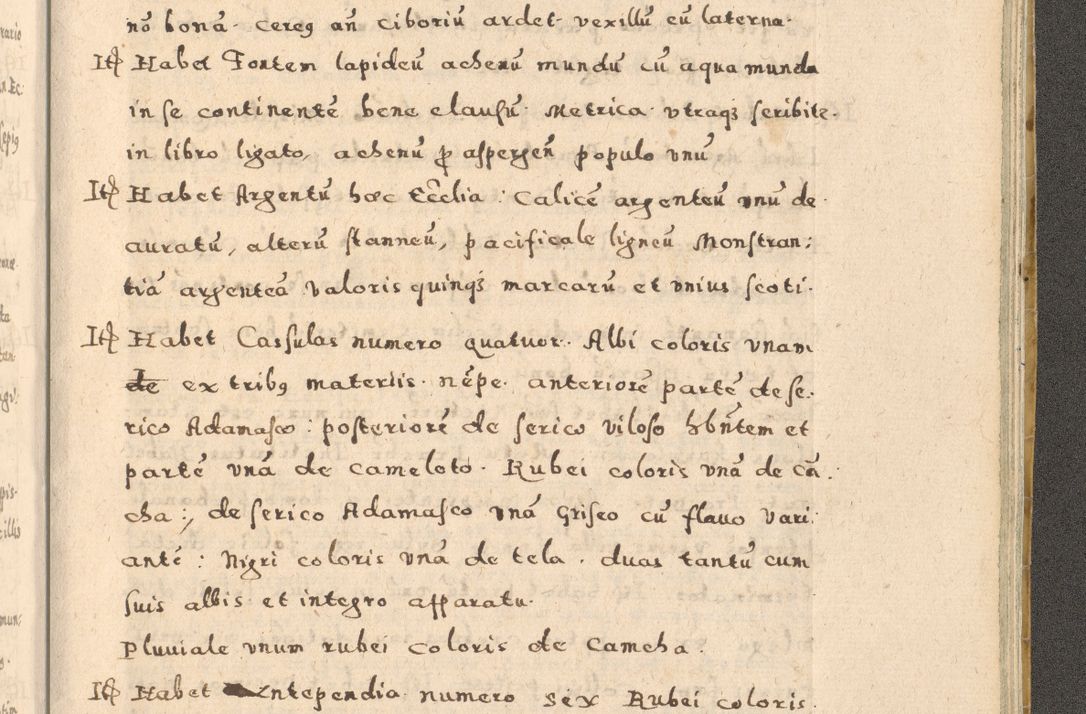 nō bonā. cereꝫ añ ciboriū ardet. vexillū cū laterna.
Itē Habet Fontem lapideū achenū mundū cū aqua munda
in se continentē bene clausū. Metrica vtraqꝫ scribitr.
in libro ligato, achenū ꝓ aspergeñ populo vnū
Itē Habet Argentū hæc Ecc̄lia: Calicē argenteū vnū de
auratū, alterū stanneū, pacificale ligneū Monstran:
tiā argenteā valoris quinqꝫ marcarū et vnius scoti.
Itē Habet Cassulas numero quatuor. Albi coloris vnam
de ex tribꝫ materiis. nēpe. anteriorē partē de se:
rico Adamasco: posteriorē de serico viloso hbn̄tem et
partē vnā de cameloto. Rubei coloris vnā de cā:
cha:, de serico Adamasco vnā griseo cū flauo vari:
antē: Nigri coloris vnā de tela. duas tantū cum
suis albis et integro apparatu.
Pluuiale vnum rubei coloris de Camcha.
Itē Habet Antependia numero sex Rubei coloris.